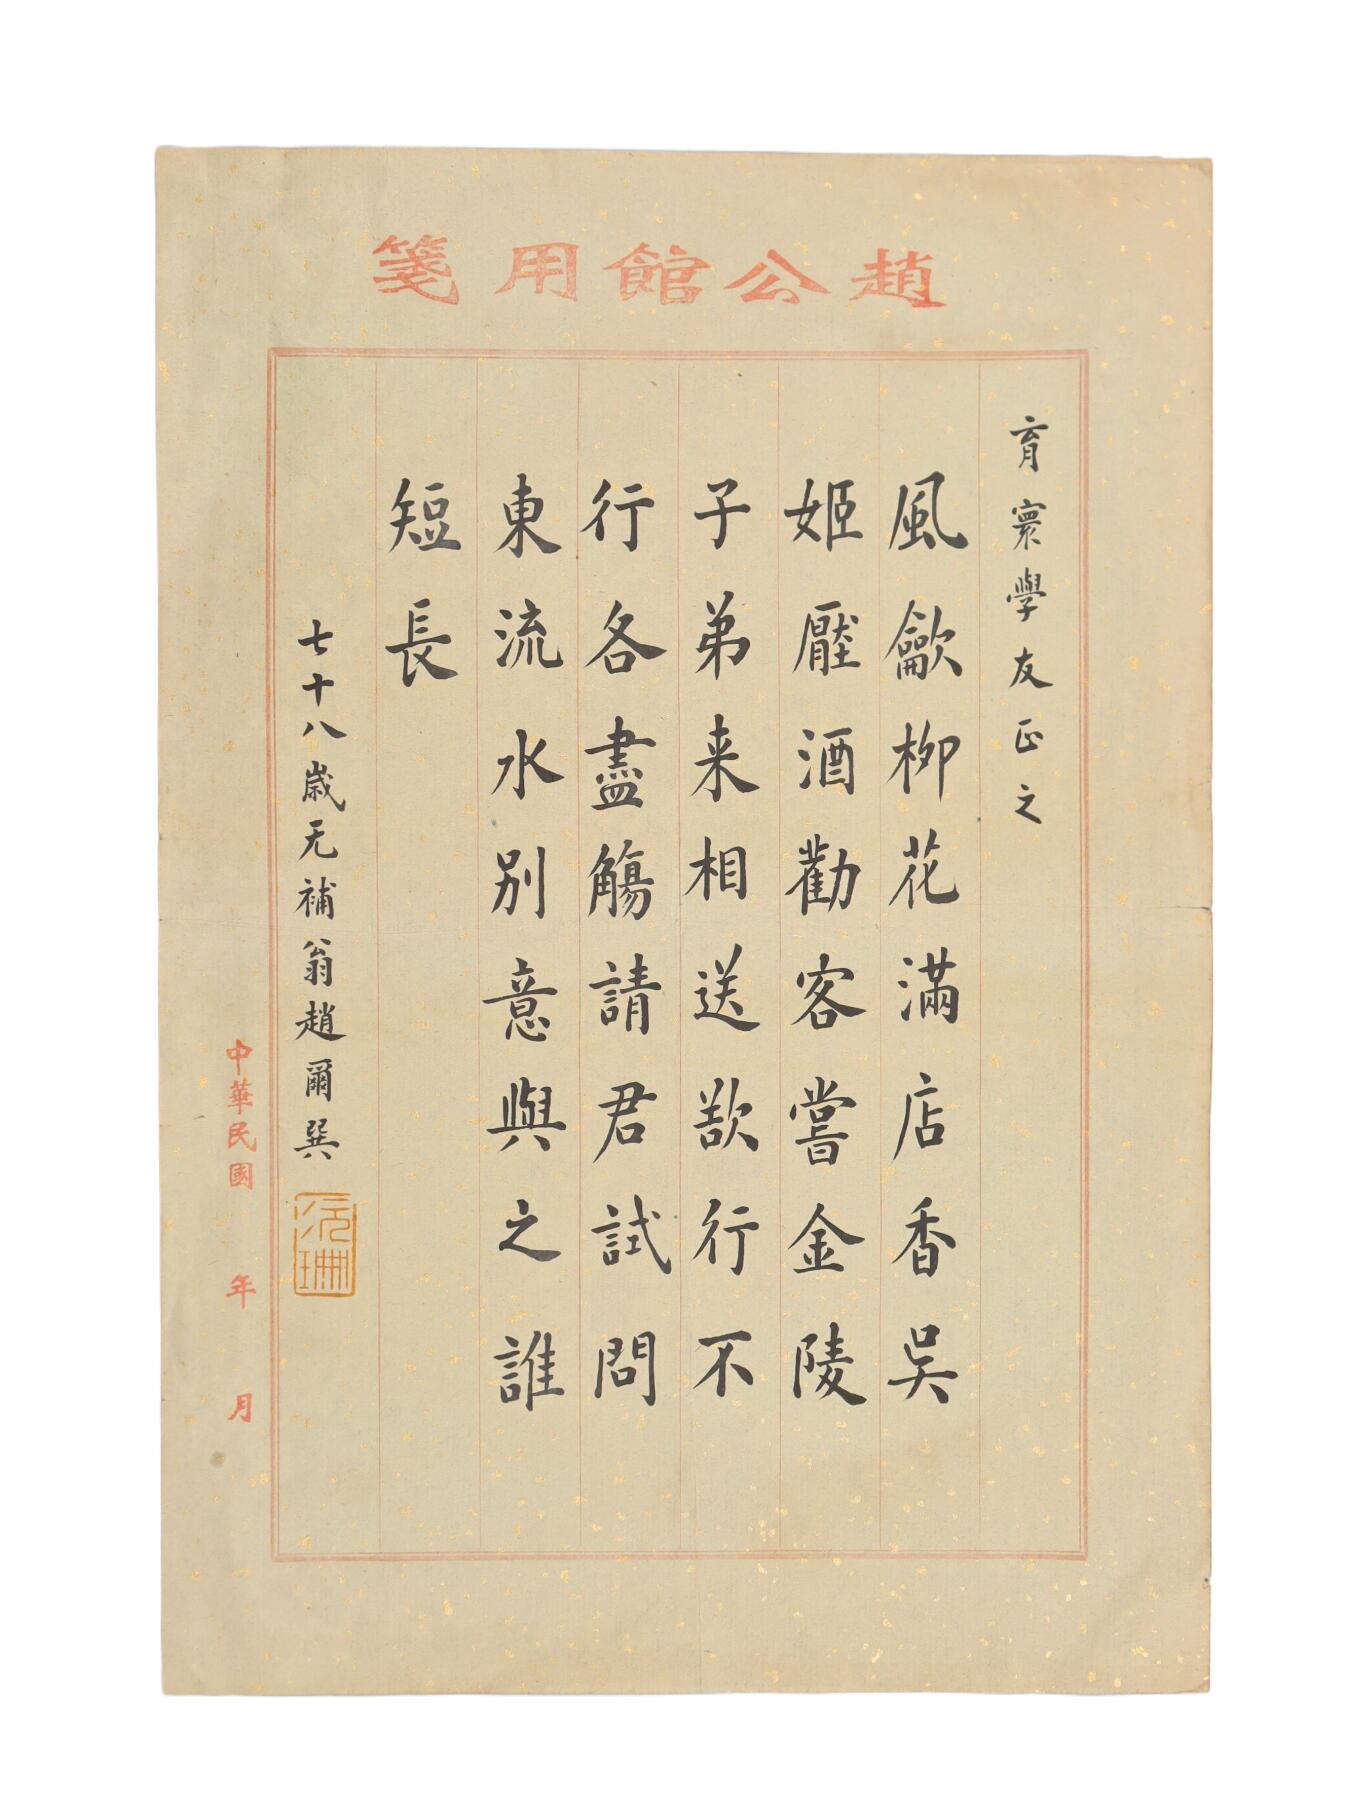 趙公館用箋
育寰學友正之
風歈柳花滿店香吳
姬壓酒勸客嘗金陵
子弟来相送欲行不
行各盡觴請君試問
東流水別意與之誰
短長
七十八歲无補翁趙爾巽
中華民國 年 月